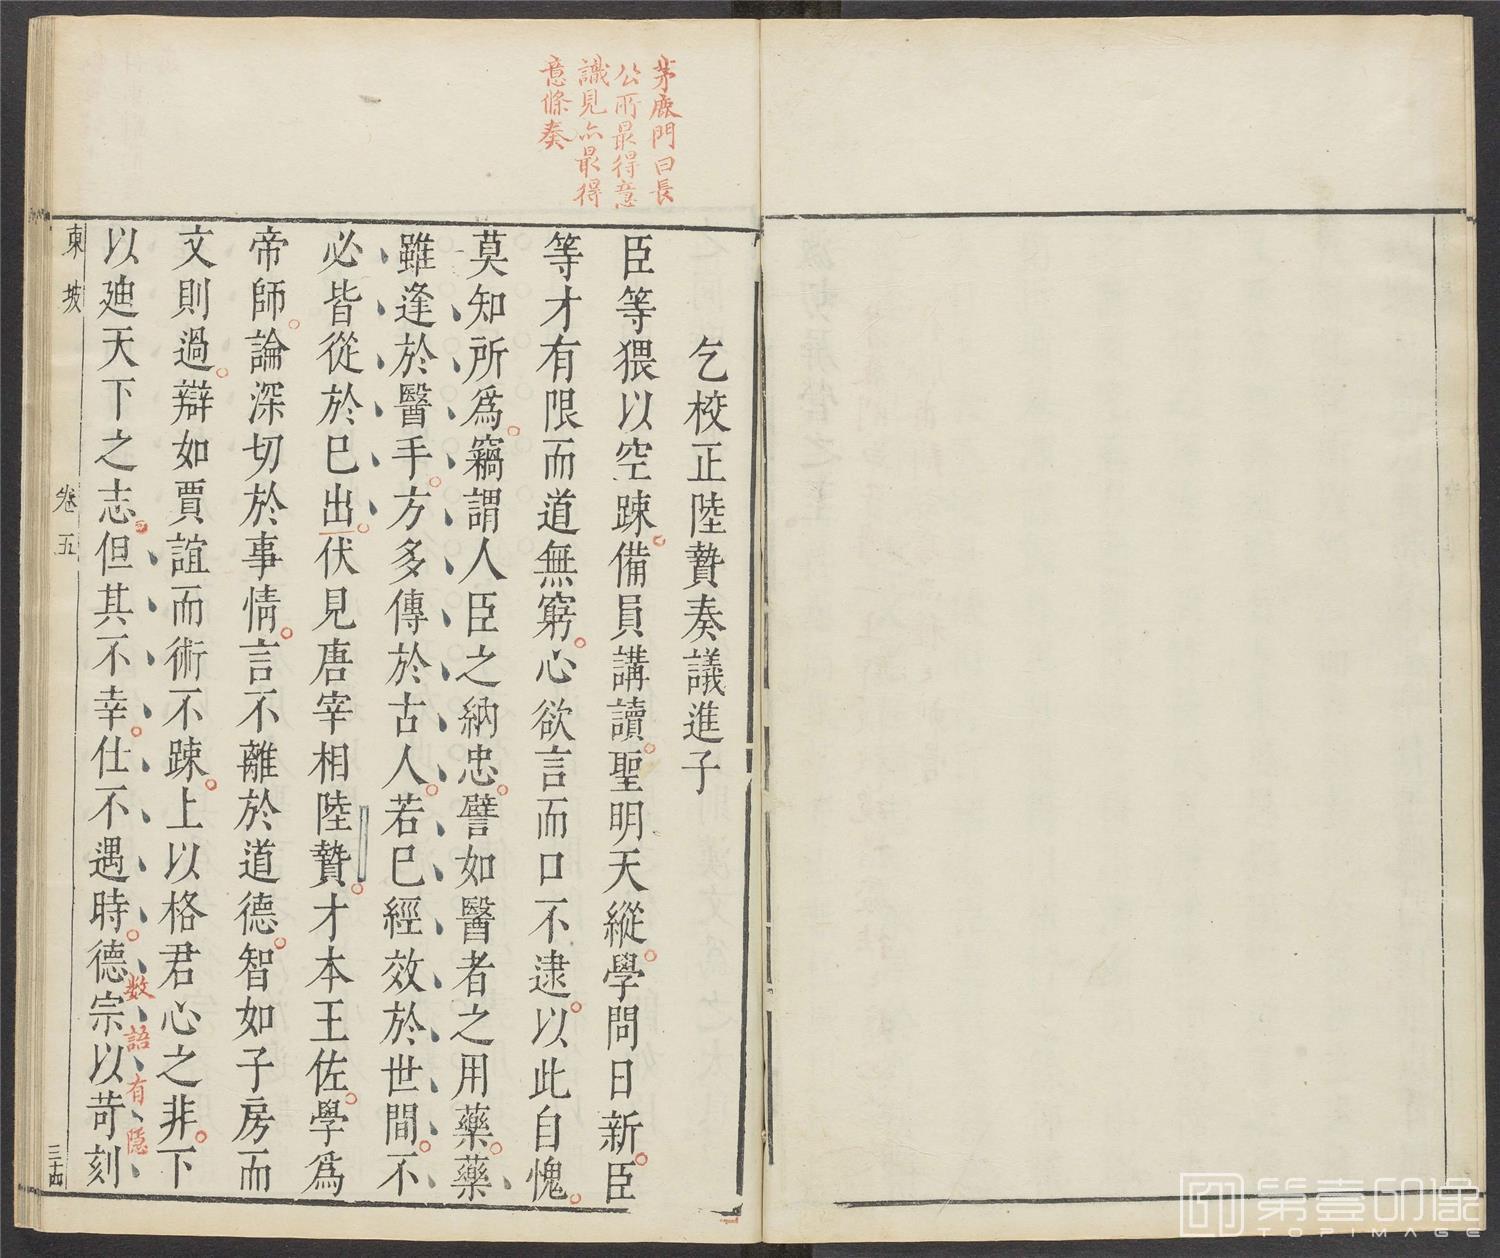 茅鹿門曰長
公所最得意
識見亦最得
意條奏
乞校正陸贄奏議進子
臣等猥以空踈備員講讀聖明天縱學問日新臣
等才有限而道無窮心欲言而口不逮以此自愧
莫知所爲竊謂人臣之納忠譬如醫者之用藥藥
雖逢於醫手方多傳於古人若已經效於世間不
必皆從於已出伏見唐宰相陸贄才本王佐學爲
帝師論深切於事情言不離於道德智如子房而
文則過辯如賈誼而術不踈上以格君心之非下
數語有隱
以廸天下之志但其不幸仕不遇時德宗以苛刻
東坡 卷五 三十四
第壹印像
TOPIMAGE